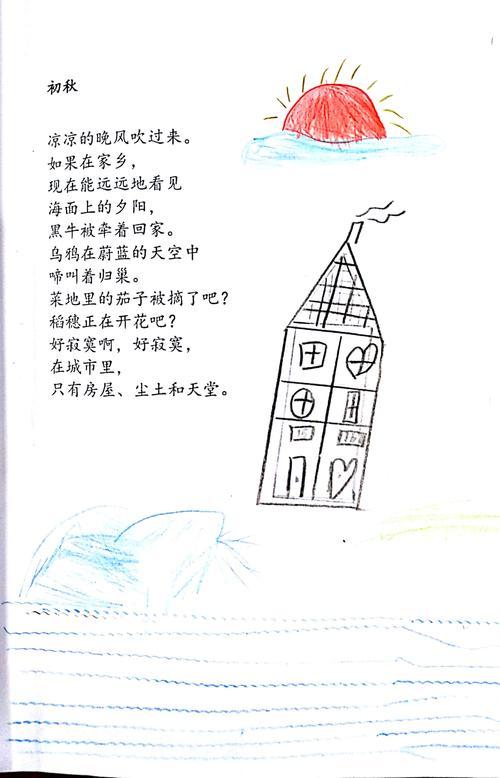 初秋
凉凉的晚风吹过来。
如果在家乡，
现在能远远地看见
海面上的夕阳，
黑牛被牵着回家。
乌鸦在蔚蓝的天空中
啼叫着归巢。
菜地里的茄子被摘了吧？
稻穗正在开花吧？
好寂寞啊，好寂寞，
在城市里，
只有房屋、尘土和天堂。